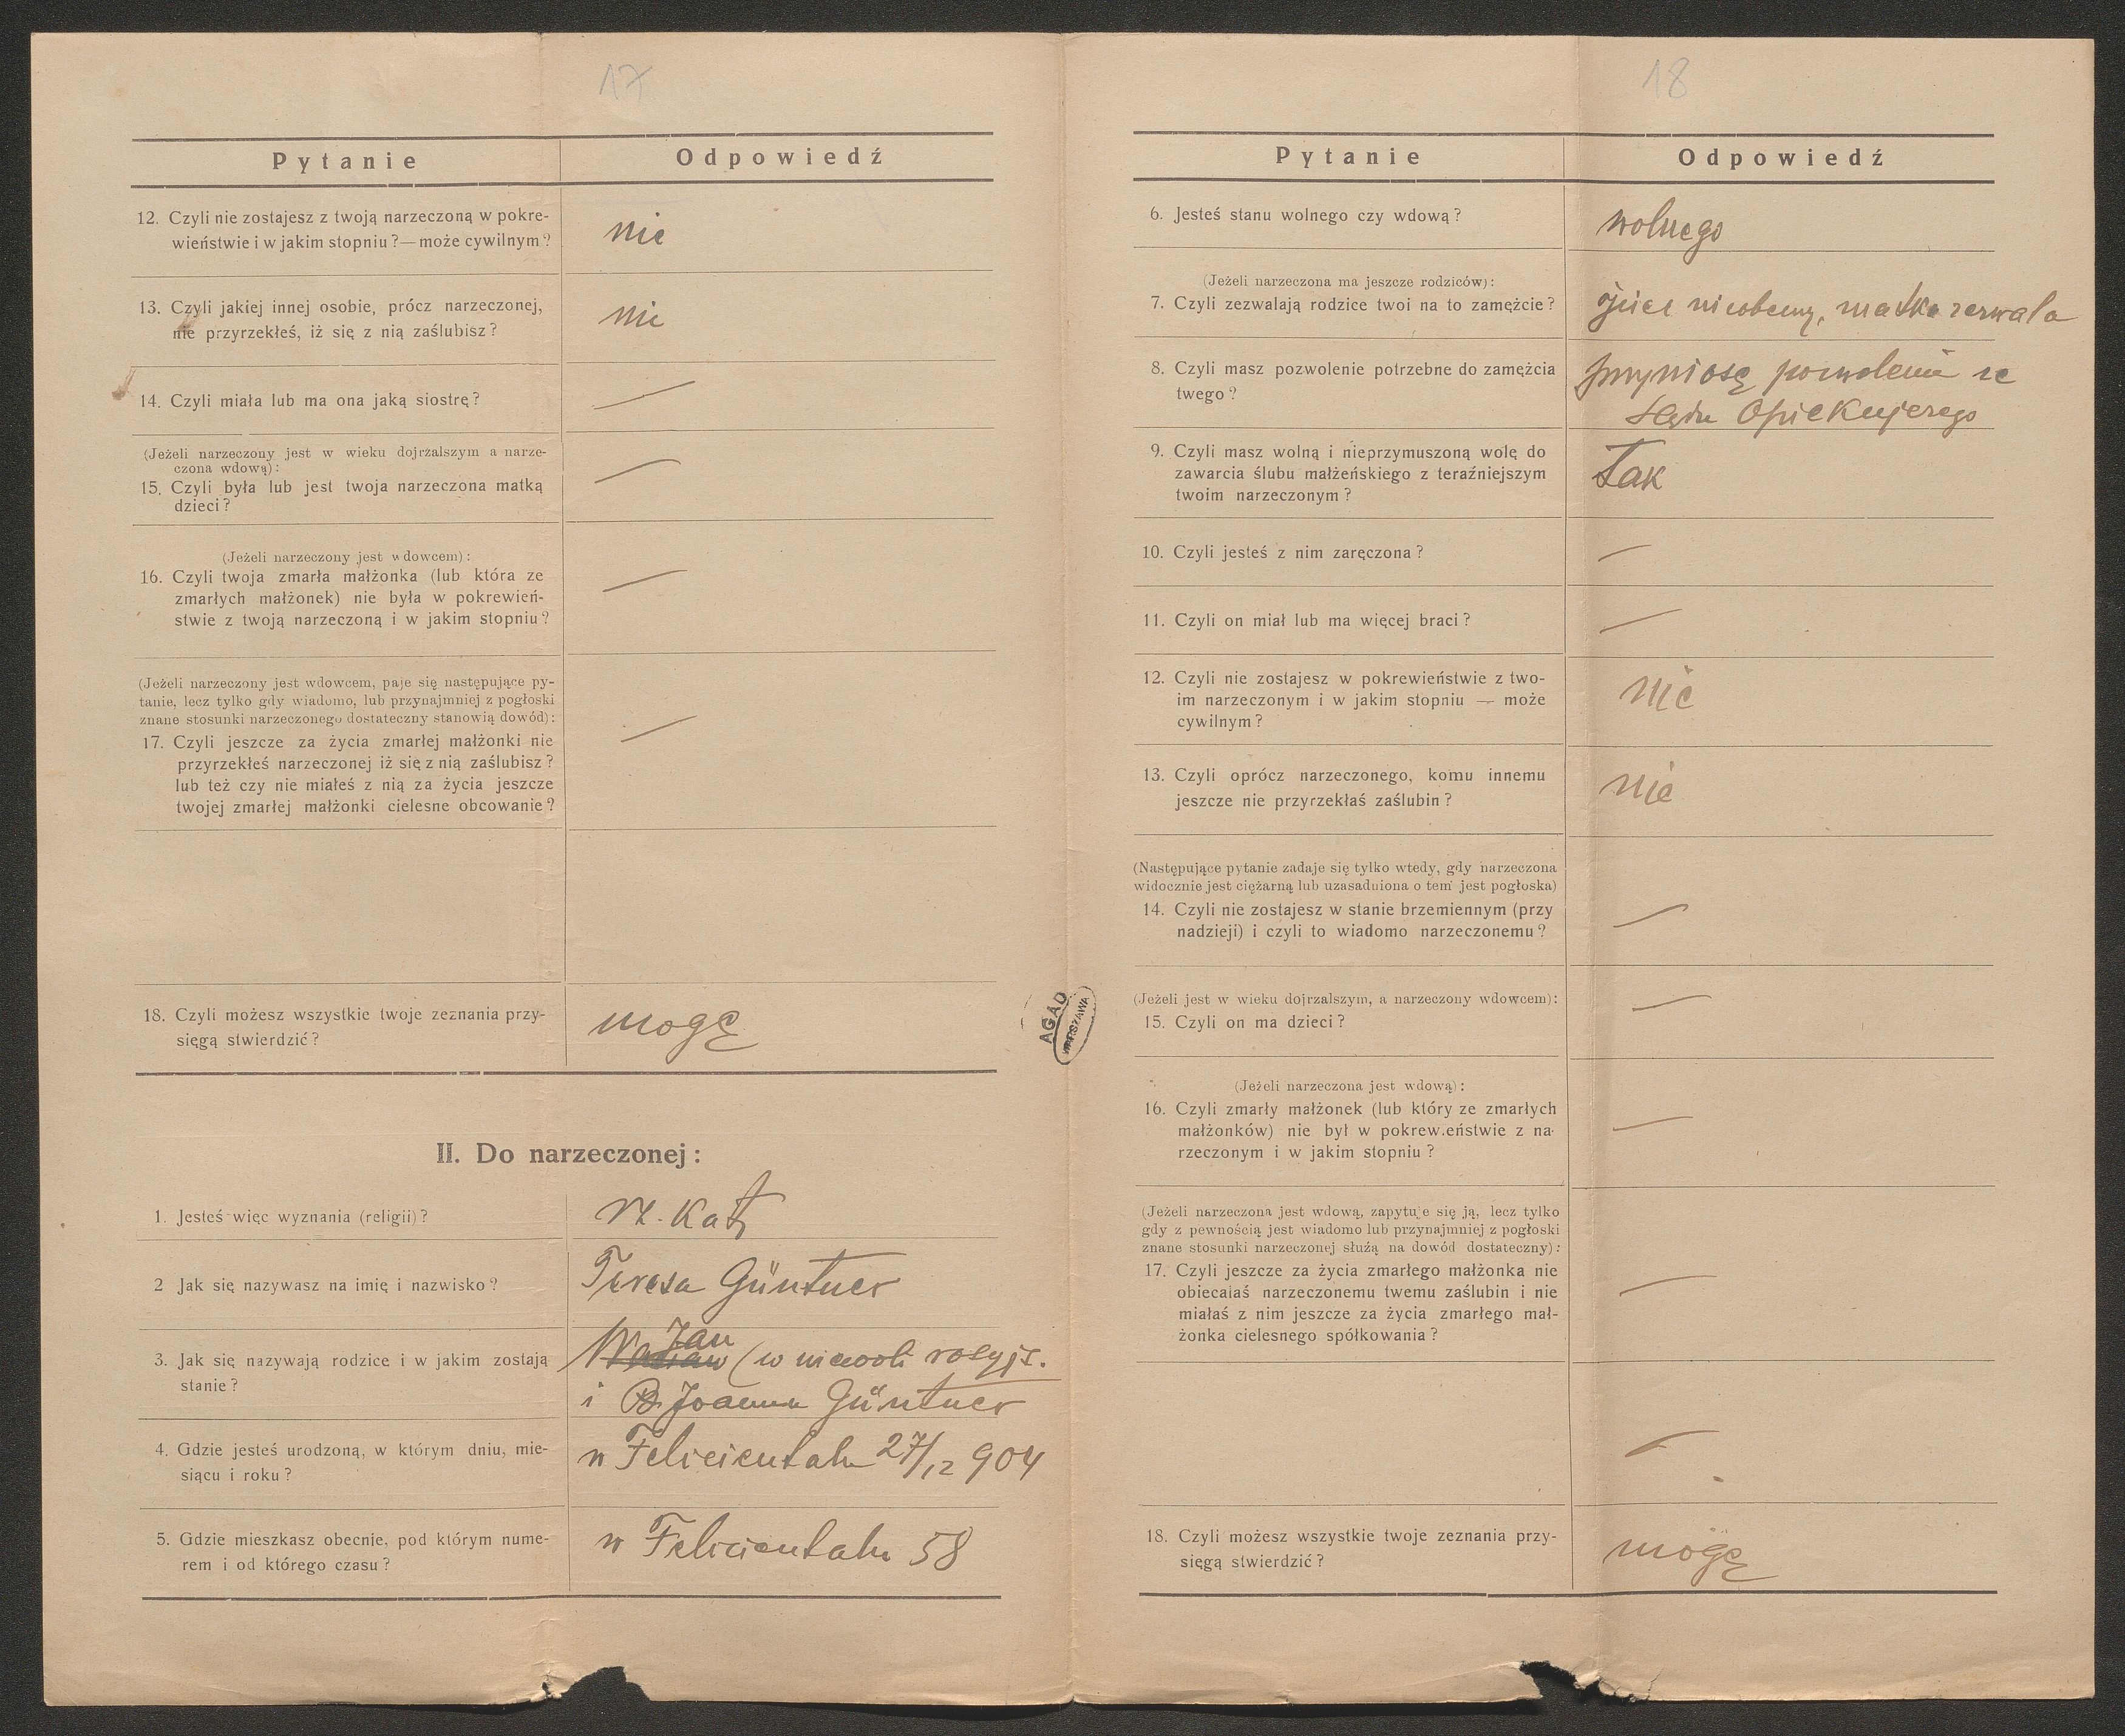 17
Pytanie
Odpowiedź
12. Czyli nie zostajesz z twoją narzeczoną w pokre-
wieństwie i w jakim stopniu ?—może cywilnym ?
nie
13. Czyli jakiej innej osobie, prócz narzeczonej,
nie przyrzekłeś, iż się z nią zaślubisz ?
nie
14. Czyli miała lub ma ona jaką siostrę ?
—
(Jeżeli narzeczony jest w wieku dojrzalszym a narze-
czona wdową) :
15. Czyli była lub jest twoja narzeczona matką
dzieci ?
—
(Jeżeli narzeczony jest wdowcem) :
16. Czyli twoja zmarła małżonka (lub która ze
zmarłych małżonek) nie była w pokrewień-
stwie z twoją narzeczoną i w jakim stopniu ?
—
(Jeżeli narzeczony jest wdowcem, paje się następujące py-
tanie, lecz tylko gdy wiadomo, lub przynajmniej z pogłoski
znane stosunki narzeczonego dostateczny stanowią dowód) :
17. Czyli jeszcze za życia zmarłej małżonki nie
przyrzekłeś narzeczonej iż się z nią zaślubisz ?
lub też czy nie miałeś z nią za życia jeszcze
twojej zmarłej małżonki cielesne obcowanie ?
—
18. Czyli możesz wszystkie twoje zeznania przy-
sięgą stwierdzić ?
mogę
II. Do narzeczonej :
1. Jesteś więc wyznania (religii) ?
rz. kat
2 Jak się nazywasz na imię i nazwisko ?
Teresa Güntner
3. Jak się nazywają rodzice i w jakim zostają
stanie ?
Jan
Wacław (w niewoli rosyjs.
i Joanna Güntner
4. Gdzie jesteś urodzoną, w którym dniu, mie-
siącu i roku ?
w Felicientalu 27/12 904
5. Gdzie mieszkasz obecnie, pod którym nume-
rem i od którego czasu ?
w Felicientalu 58
AGAD
WARSZAWA
18
Pytanie
Odpowiedź
6. Jesteś stanu wolnego czy wdową ?
wolnego
(Jeżeli narzeczona ma jeszcze rodziców) :
7. Czyli zezwalają rodzice twoi na to zamężcie ?
ojciec nieobecny, matka zezwala
8. Czyli masz pozwolenie potrzebne do zamężcia
twego ?
przyniosę pozwolenie ze
Sądu Opiekujczego
9. Czyli masz wolną i nieprzymuszoną wolę do
zawarcia ślubu małżeńskiego z teraźniejszym
twoim narzeczonym ?
Tak
10. Czyli jesteś z nim zaręczona ?
—
11. Czyli on miał lub ma więcej braci ?
—
12. Czyli nie zostajesz w pokrewieństwie z two-
im narzeczonym i w jakim stopniu — może
cywilnym ?
nie
13. Czyli oprócz narzeczonego, komu innemu
jeszcze nie przyrzekłaś zaślubin ?
nie
(Następujące pytanie zadaje się tylko wtedy, gdy narzeczona
widocznie jest ciężarną lub uzasadniona o tem jest pogłoska)
14. Czyli nie zostajesz w stanie brzemiennym (przy
nadzieji) i czyli to wiadomo narzeczonemu ?
—
(Jeżeli jest w wieku dojrzalszym, a narzeczony wdowcem) :
15. Czyli on ma dzieci ?
—
(Jeżeli narzeczona jest wdową) :
16. Czyli zmarły małżonek (lub który ze zmarłych
małżonków) nie był w pokrew.eństwie z na-
rzeczonym i w jakim stopniu ?
—
(Jeżeli narzeczona jest wdową, zapytuje się ją, lecz tylko
gdy z pewnością jest wiadomo lub przynajmniej z pogłoski
znane stosunki narzeczonej służą na dowód dostateczny) :
17. Czyli jeszcze za życia zmarłego małżonka nie
obiecałaś narzeczonemu twemu zaślubin i nie
miałaś z nim jeszcze za życia zmarłego mał-
żonka cielesnego spółkowania ?
—
—
18. Czyli możesz wszystkie twoje zeznania przy-
sięgą stwierdzić ?
mogę